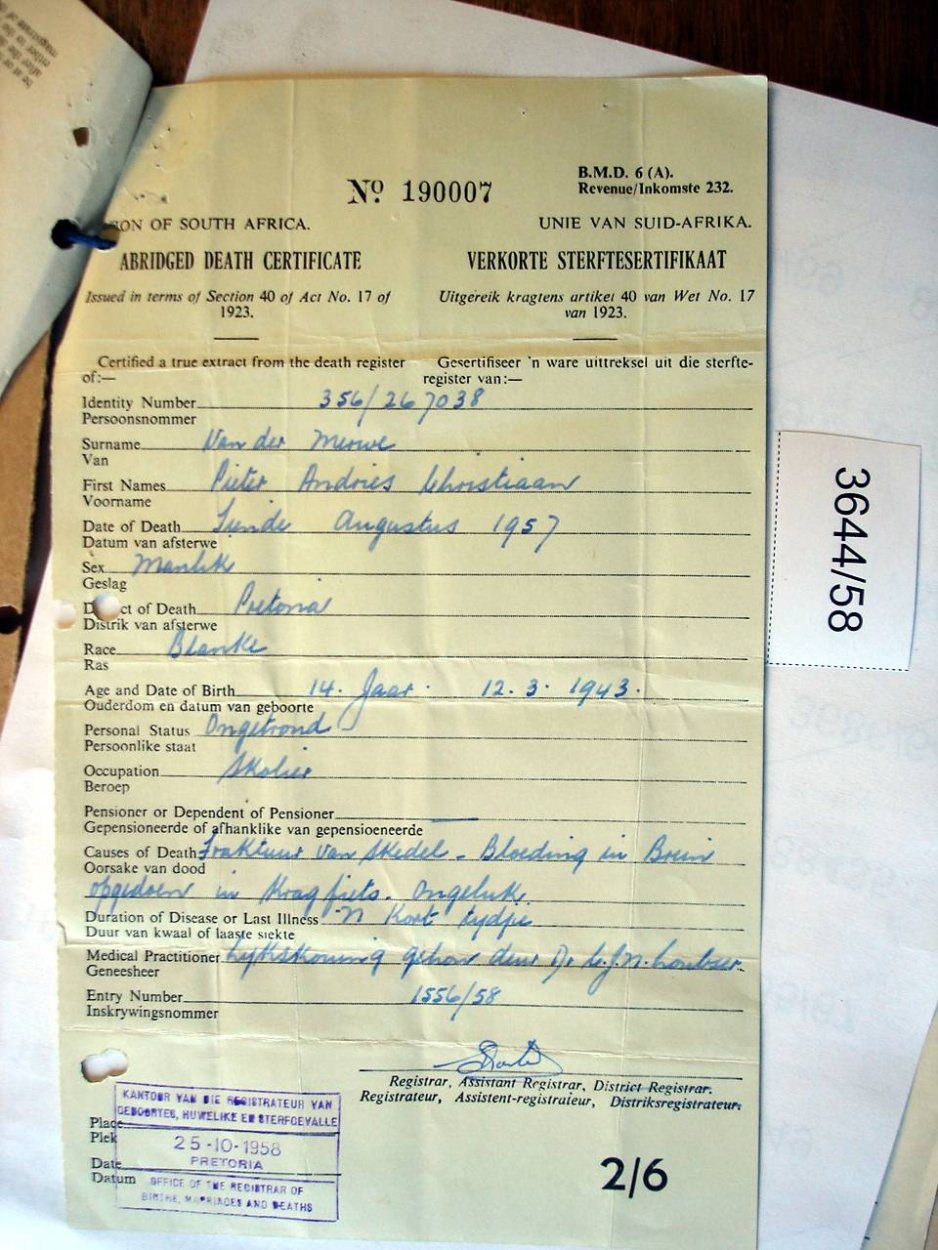 No 190007
B.M.D. 6 (A).
Revenue/Inkomste 232.
ON OF SOUTH AFRICA.
UNIE VAN SUID-AFRIKA.
ABRIDGED DEATH CERTIFICATE
VERKORTE STERFTESERTIFIKAAT
Issued in terms of Section 40 of Act No. 17 of
1923.
Uitgereik kragtens artikel 40 van Wet No. 17
van 1923.
Certified a true extract from the death register
of:—
Gesertifiseer 'n ware uittreksel uit die sterfte-
register van:—
Identity Number 356/267038
Persoonsnommer
Surname Van der Merwe
Van
First Names Pieter Andries Christiaan
Voorname
Date of Death Augustus 1957
Datum van afsterwe
Sex Manlik
Geslag
D ct of Death Pretoria
Distrik van afsterwe
Race Blanke
Ras
Age and Date of Birth 14. Jaar. 12.3.1943.
Ouderdom en datum van geboorte
Personal Status Ongetroud
Persoonlike staat
Occupation Skolier
Beroep
Pensioner or Dependent of Pensioner —
Gepensioneerde of afhanklike van gepensioeneerde
Causes of Death Fraktuur van Skedel - Bloeding in Brein
Oorsake van dood
opgedoen in Krag fiets. Ongeluk.
Duration of Disease or Last Illness 'n Kort tydjie
Duur van kwaal of laaste siekte
Medical Practitioner Lykskouing gehou deur Dr
Geneesheer
Entry Number 1556/58
Inskrywingsnommer
Registrar, Assistant Registrar, District Registrar.
Registrateur, Assistent-registrateur, Distriksregistrateur.
KANTOOR VAN DIE REGISTRATEUR VAN
GEBOORTES, HUWELIKE EN STERFGEVALLE
Place
Plek
25-10-1958
PRETORIA
Date
Datum
OFFICE OF THE REGISTRAR OF
BIRTHS, MARRIAGES AND DEATHS
2/6
3644/58